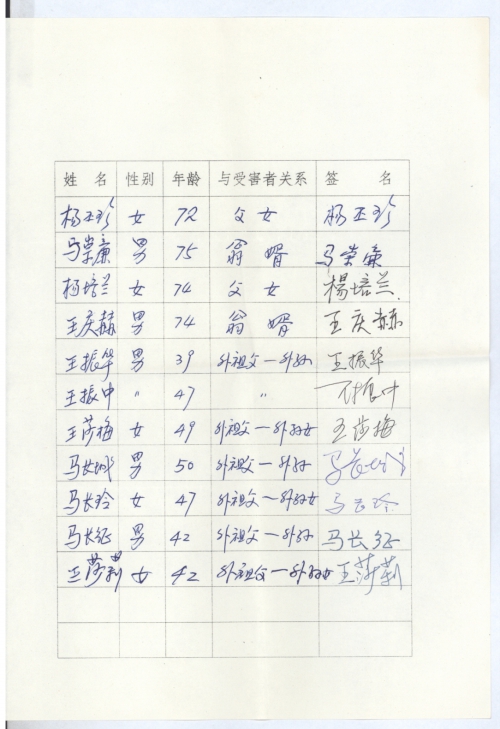 姓 名 性别 年龄 与受害者关系 签 名
杨玉珍 女 72 父女 杨玉珍
马崇廉 男 75 翁婿 马崇廉
杨培兰 女 74 父女 楊培兰
王庆赫 男 74 翁婿 王庆赫
王振华 男 39 外祖父一外孙 王振华
王振中 〃 47 〃 王振中
王莎梅 女 49 外祖父一外孙女 王莎梅
马长城 男 50 外祖父一外孙 马长城
马长玲 女 47 外祖父一外孙女 马长玲
马长征 男 42 外祖父一外孙 马长征
王莎莉 女 42 外祖父一外孙女 王莎莉